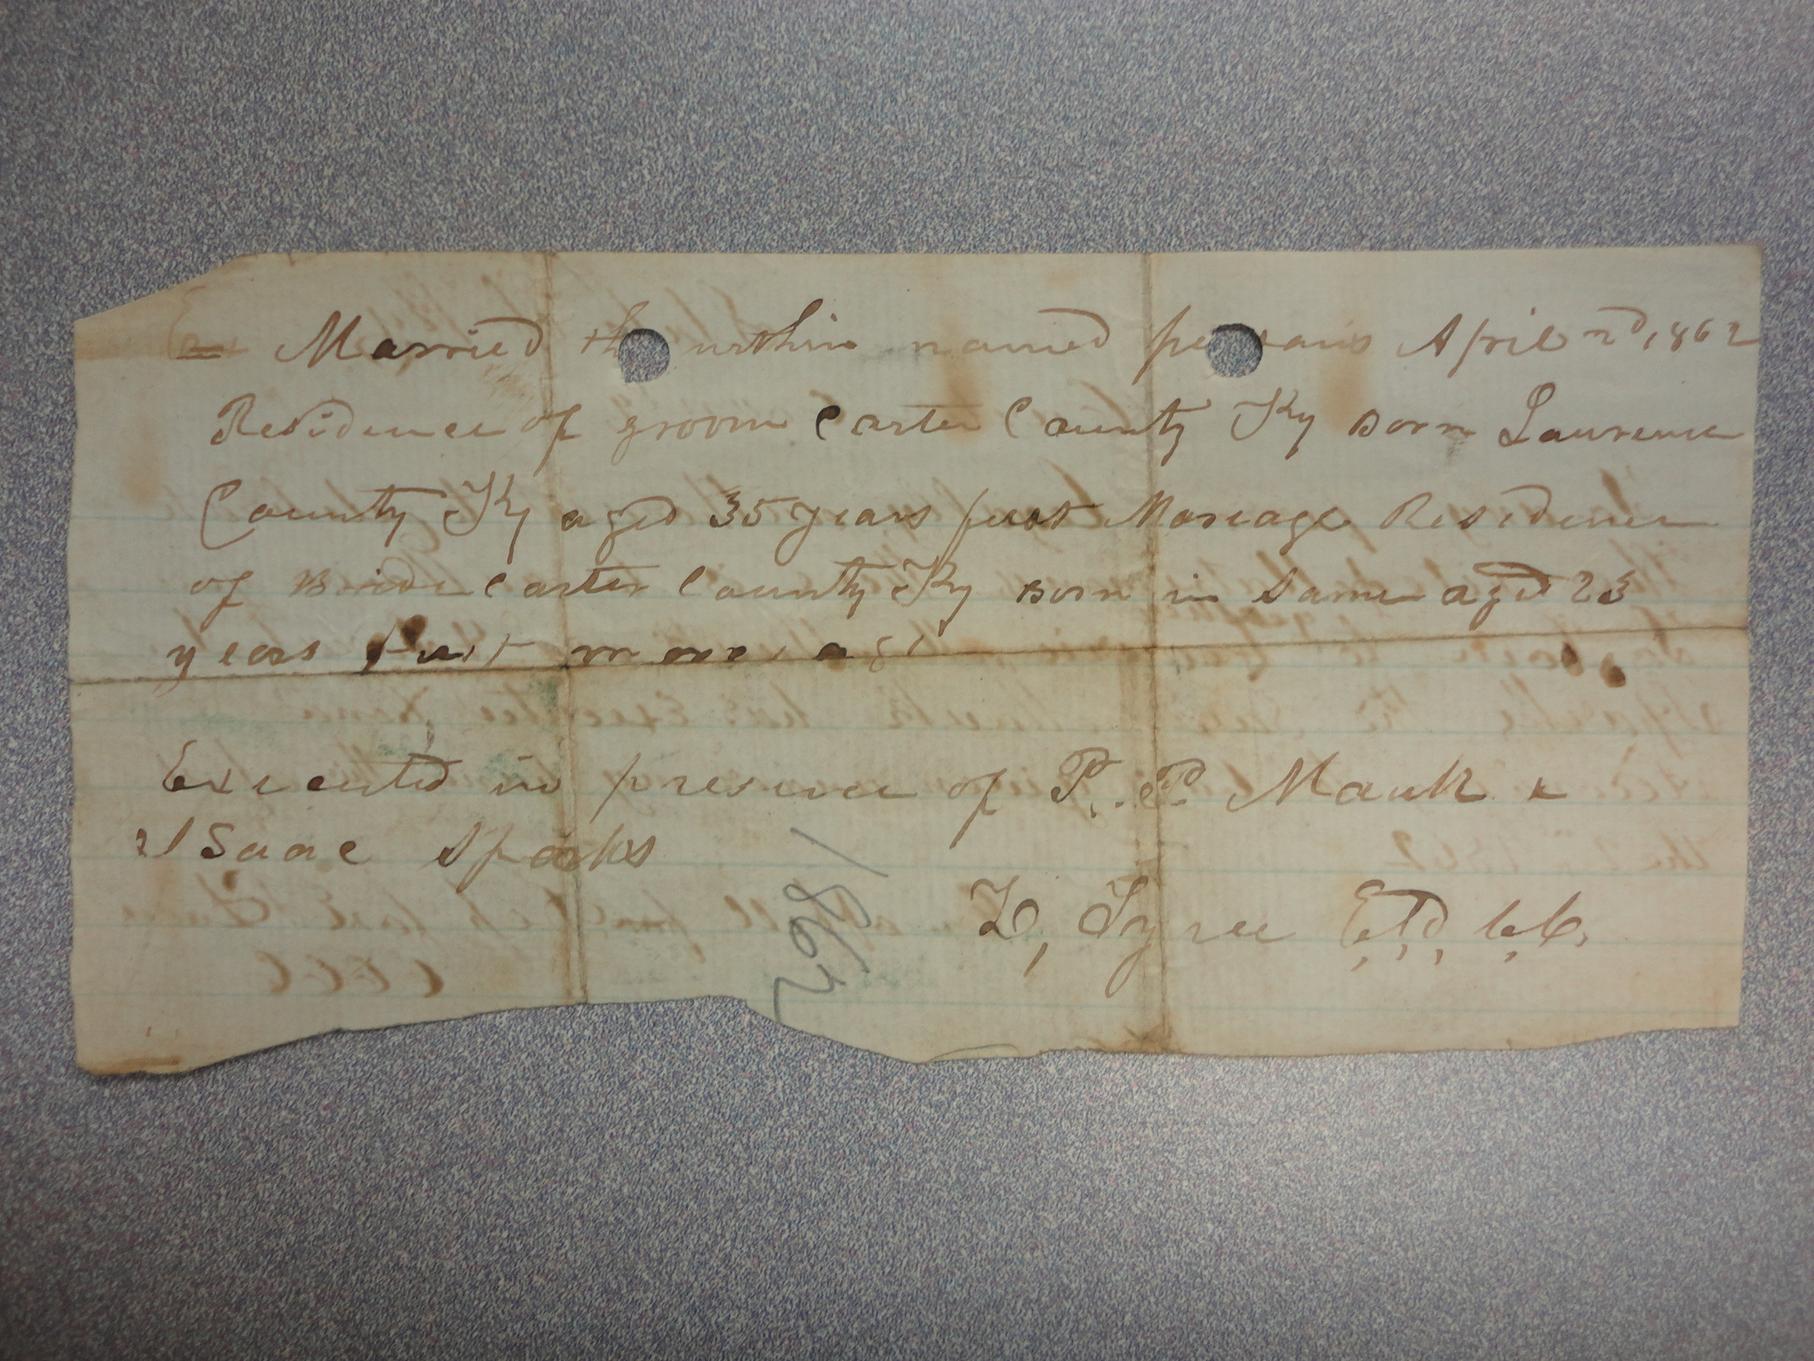 Married the within named persons April 2d, 1862
Residence of groom Carter County Ky Born Laurence
County Ky aged 35 years first Mareage Residence
of Bride Carter County Ky Born in Same aged 23
years first
Executed in presence of P. P. Mauk &
Isaac Sparks
1862
Z, Tyree